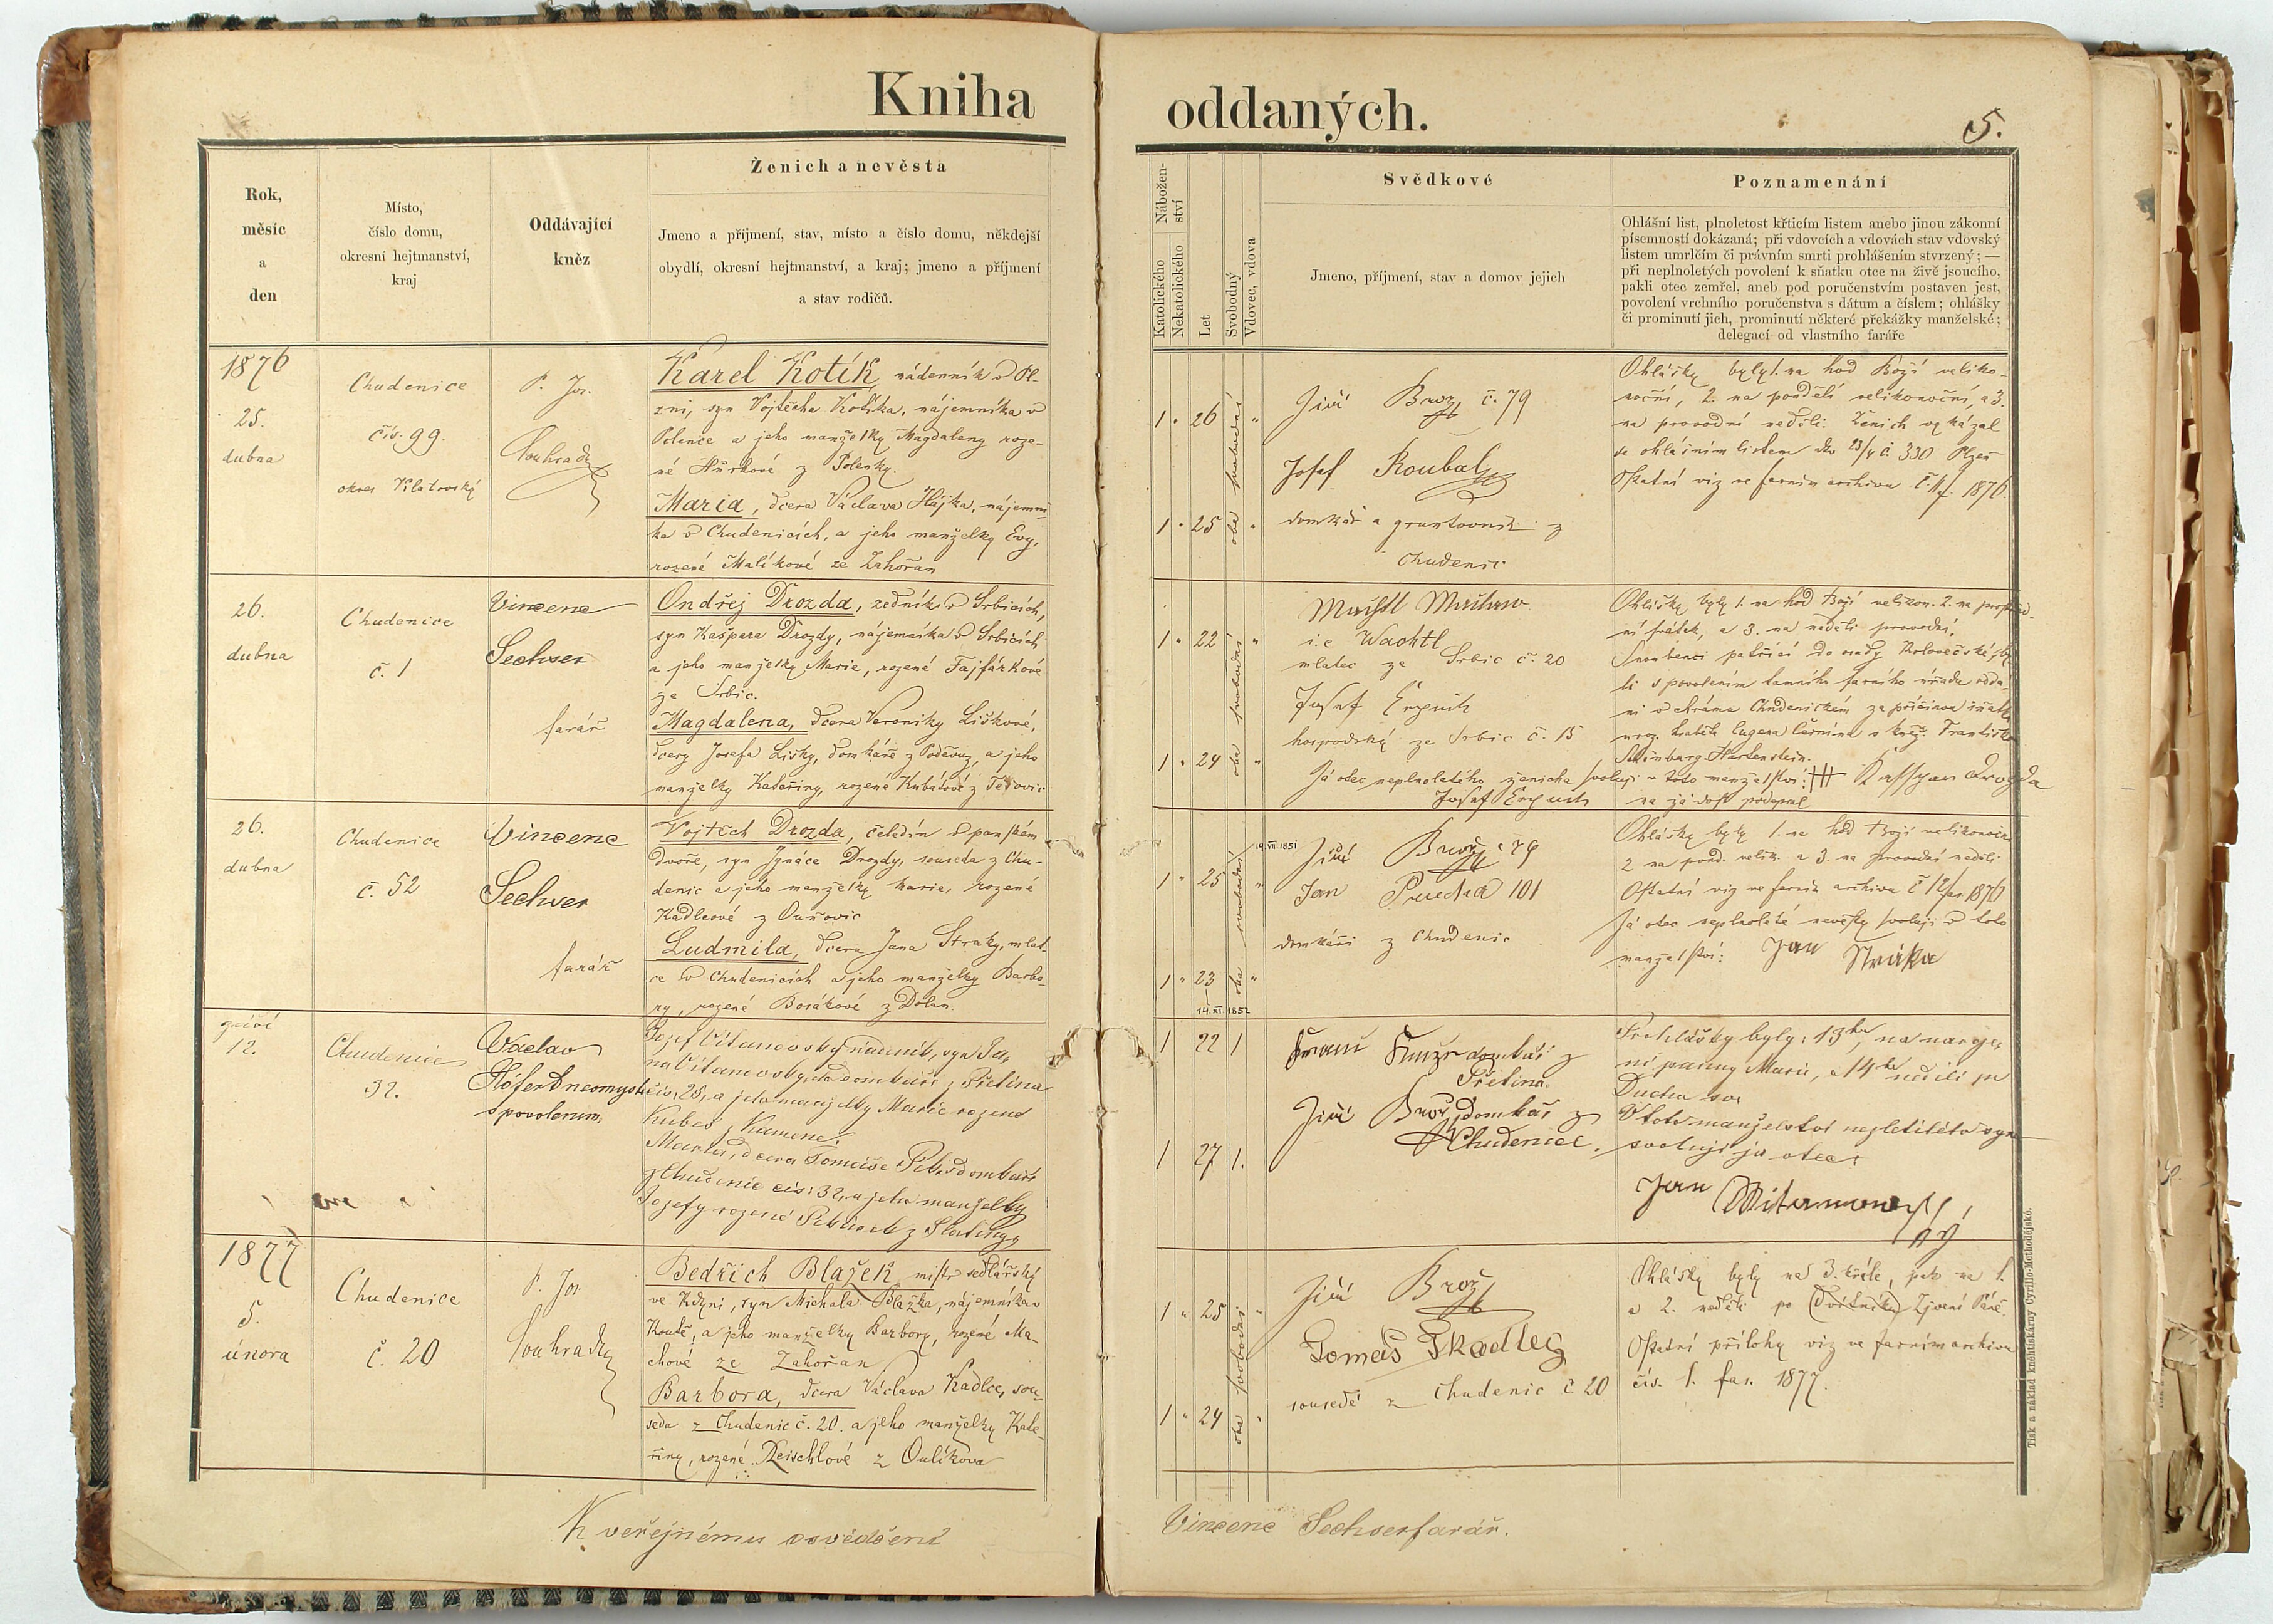 Kniha oddaných.
5.
Rok,
měsíc
a
den
Místo,
číslo domu,
okresní hejtmanství,
kraj
Oddávající
kněz
Ženich a nevěsta
Jmeno a příjmení, stav, místo a číslo domu, někdejší
obydlí, okresní hejtmanství, a kraj; jmeno a příjmení
a stav rodičů.
Nábožen-
ství
Katolického
Nekatolického
Let
Svobodný
Vdovec, vdova
Svědkové
Jmeno, příjmení, stav a domov jejich
Poznamenání
Ohlášní list, plnoletost křticím listem anebo jinou zákonní
písemností dokázaná; při vdovcích a vdovách stav vdovský
listem umrlčím či právním smrti prohlášením stvrzený; —
při neplnoletých povolení k sňatku otce na živě jsoucího,
pakli otec zemřel, aneb pod poručenstvím postaven jest,
povolení vrchního poručenstva s dátum a číslem; ohlášky
či prominutí jich, prominutí některé překážky manželské;
delegací od vlastního faráře
1876
25.
dubna
Chudenice
čís. 99.
okres Klatovský
P. Jos.
Souhrada
Karel Kotík, nádenník v Pl-
zni, syn Vojtěcha Kotíka, nájemníka v
Polence a jeho manželky Magdaleny roze-
né Hůrkové z Polenky.
Maria, dcera Václava Hájka, nájemní-
ka v Chudenicích, a jeho manželky Evy,
rozené Malíkové ze Zahořan
1 " 26 "
1 " 25 "
oba svobodní
Jiří Brož č. 79
Josef Roubal
domkář a gruntovník z
Chudenic
Ohlášky byly 1. na hod Boží veliko-
noční, 2. na pondělí velikonoční, a 3.
na provodní neděli. Ženich vykázal
se ohlášním listem dto 23/4 č. 330 Plzeň
Ostatní viz ve farním archivu č. 11/f. 1876.
26.
dubna
Chudenice
č. 1
Vincenc
Sechser
farář
Ondřej Drozda, zedník v Srbicích,
syn Kašpara Drozdy, nájemníka v Srbicích
a jeho manželky Marie, rozené Fajfárkové
ze Srbic.
Magdalena, dcera Veroniky Liškové,
dcery Josefa Lišky, domkáře z Poděvuz, a jeho
manželky Kateřiny, rozené Kubátové z Těšovic
1 " 22 "
1 " 24 "
oba svobodní
i. e Wachtl
mlatec ze Srbic č. 20
Josef
hospodský ze Srbic č. 15
Já otec neplnoletého ženicha svoluji v toto manželství: +++ Kasspar Drozda
Josef na žádost podepsal
Ohlášky byly 1. na hod Boží velikon. 2. na prostřed-
ní svátek, a 3. na neděli provodní.
Snoubenci patřící do osady Kolovečské, by-
li s povolením tamního farního úřadu oddá-
ni v chrámě Chudenickém za příčinou sňatku
uroz. hraběte Eugena Černína s kněž. Františkou
Schönburg-Hartenstein.
26.
dubna
Chudenice
č. 52
Vincenc
Sechser
farář
Vojtěch Drozda, čeledín v panském
dvoře, syn Ignáce Drozdy, souseda z Chu-
denic a jeho manželky Marie, rozené
Kadlcové z Ouňovic
Ludmila, dcera Jana Straky, mlat-
ce v Chudenicích a jeho manželky Barbo-
ry, rozené Bosákové z Dolan.
19. VII. 1851
1 " 25 "
1 " 23 "
14. XI. 1852
oba svobodní
Jiří Brož č 79
Jan Prucha 101
domkáři z Chudenic
Ohlášky byly 1. na hod Boží velikonoční
2 na pond. velik. a 3. na provodní neděli
Ostatní viz ve farním archivu č 12/far 1876
Já otec neplnoleté nevěsty svoluji v toto
manželství: Jan Stráka
září
12.
Chudenice
32.
Václav
Höfer
s povolením.
Josef Vítanovský nádeník, syn Ja-
na Vítanovského domkáře z Přetína
čís. 28, a jeho manželky Marie rozené
Kubeš z Kamene.
Marta, dcera Tomáše domkáře
z Chudenic čís: 32, a jeho manželky
Josefy rozené z Slatiny
1 22 1
1 27 1.
domkář z
Přetína.
Jiří Brož domkář z
Chudenic.
Prohlášky byly: 13ho, na naroze-
ní panny Marie, a 14tu neděli po
Duchu sv.
V toto manželství nezletilého syna
svoluji já otec:
Jan Witanowský
1877
5.
února
Chudenice
č. 20
P. Jos.
Souhrada
Bedřich Blažek, mistr sedlářský
ve Kdyni, syn Michala Blažka, nájemníka v
Koutě, a jeho manželky Barbory, rozené Ma-
chové ze Zahořan
Barbora, dcera Václava Kadlce, sou-
seda z Chudenic č. 20. a jeho manželky Kate-
řiny, rozené Reischlové z Oulíkova
1 " 25 "
1 " 24 "
oba svobodní
Jiří Brož
Tomáš Skadlec
sousedé z Chudenic č 20
Ohlášky byly na 3. krále, pak na 1.
a 2. neděli po Zjevení Páně
Ostatní přílohy viz ve farním archivu
čís. 1. far. 1877.
K veřejnému osvědčení
Vincenc Sechser farář.
Tisk a náklad kněhtiskárny Cyrillo-Methodějské.